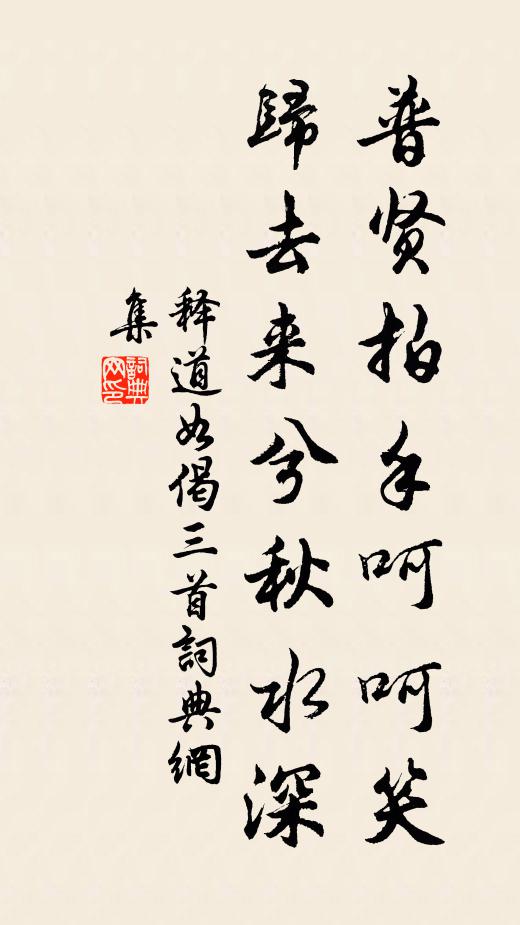 普贤拍手呵呵笑
歸去来兮秋水深
释道如偈三首詞典網
集
詞典網印